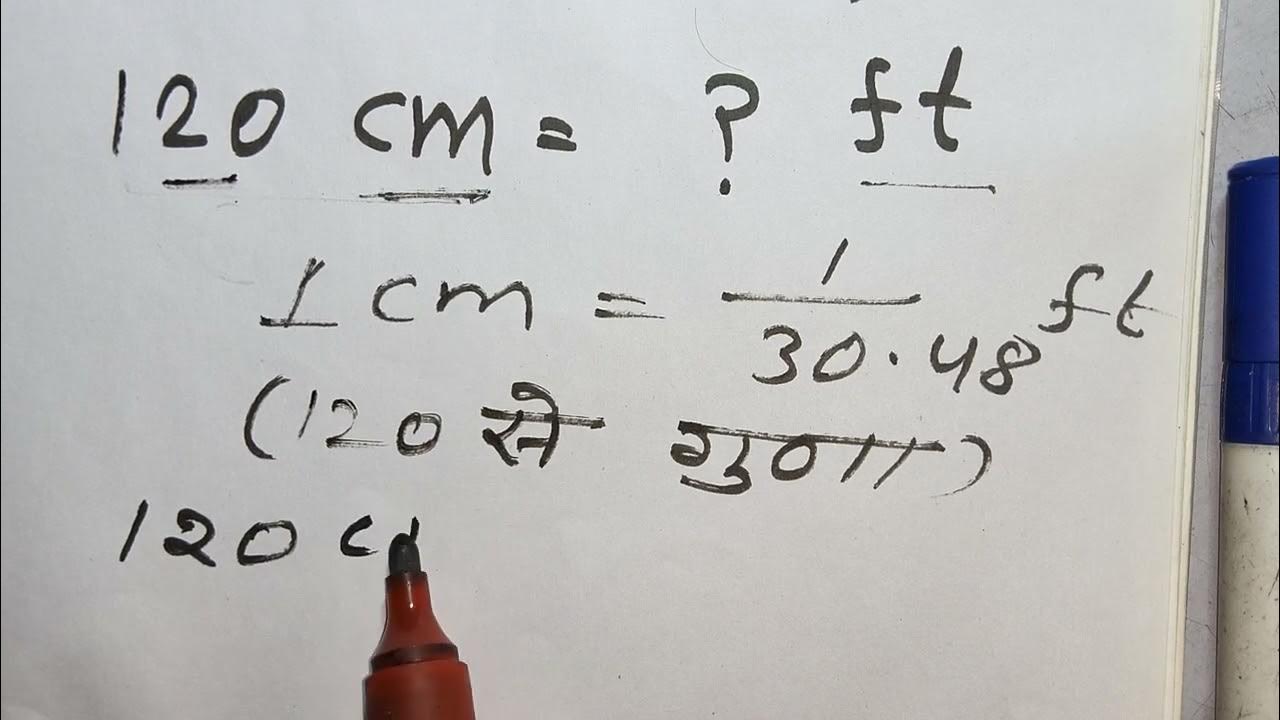 120 cm = ? ft
1 cm = 1/30.48 ft
(120 से गुणा)
120 c